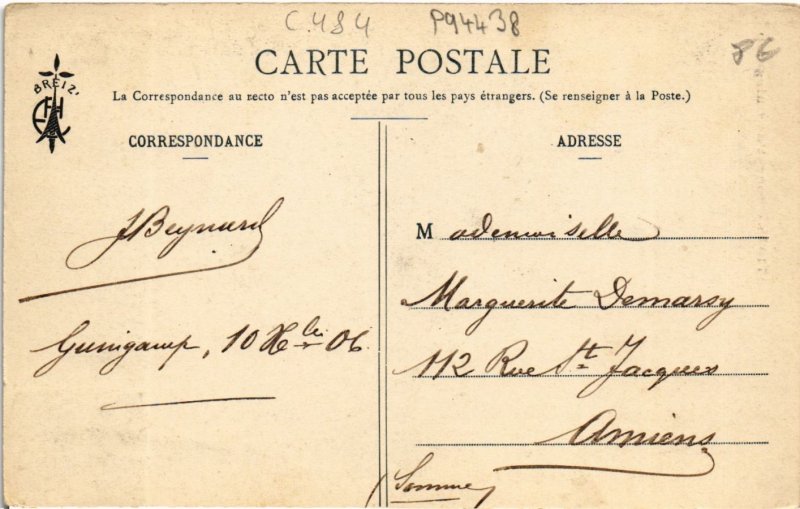 C.484 P94438
86
BREIZ'
CARTE POSTALE
La Correspondance au recto n'est pas acceptée par tous les pays étrangers. (Se renseigner à la Poste.)
CORRESPONDANCE
JBeynard
Guingamp, 10 Xbre 06
ADRESSE
Mademoiselle
Marguerite Demarsy
112 Rue St Jacques
Amiens
(Somme)